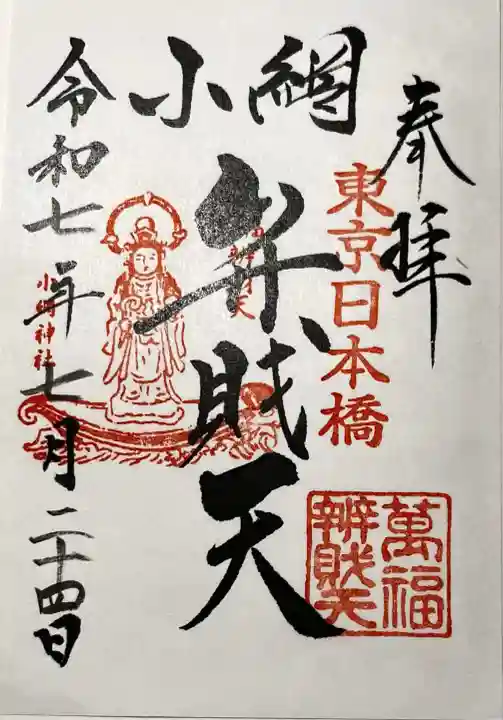 奉拝
東京日本橋
萬福
辨財天
小網
弁財天
小網神社
令和七年七月二十四日